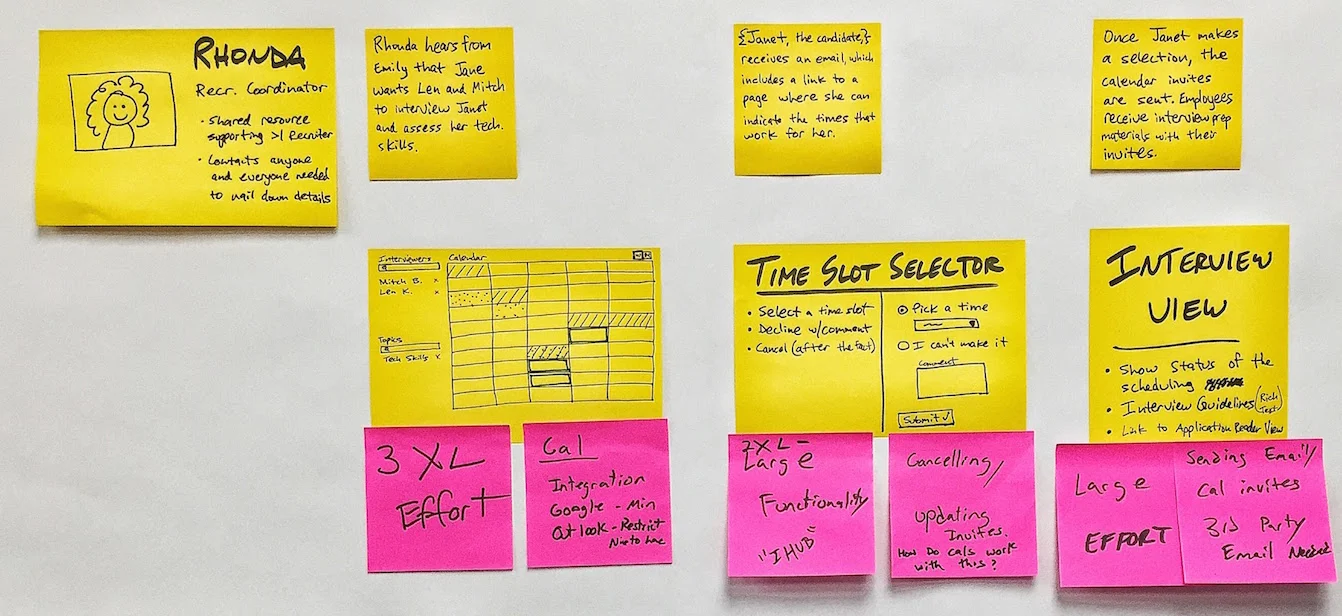 RHONDA
Recr. Coordinator
• Shared resource
supporting >1 Recruiter
• Contacts anyone
and everyone needed
to nail down details
Rhonda hears from
Emily that Jane
wants Len and Mitch
to interview Janet
and assess her tech.
skills.
{Janet, the candidate,}
receives an email, which
includes a link to a
page where she can
indicate the times that
work for her.
Once Janet makes
a selection, the
calendar invites
are sent. Employees
receive interview prep
materials with their
invites.
Interviewers
Mitch B. x
Len K. x
Topics
Tech Skills x
Calendar
TIME SLOT SELECTOR
• Select a time slot
• Decline w/comment
• Cancel (after the fact)
Pick a time
I can't make it
Comment
Submit ✓
INTERVIEW
VIEW
• Show status of the
scheduling
• Interview Guidelines (Rich
Text)
• Link to Application Reader View
3 XL
Effort
Cal
Integration
Google - Min
Outlook - Restrict
Nice to have
2XL -
Large
Functionality
"IHUB"
Cancelling/
updating
Invites.
How Do cals work
with this?
Large
EFFORT
Sending Email/
Cal invites
3rd Party
Email Needed